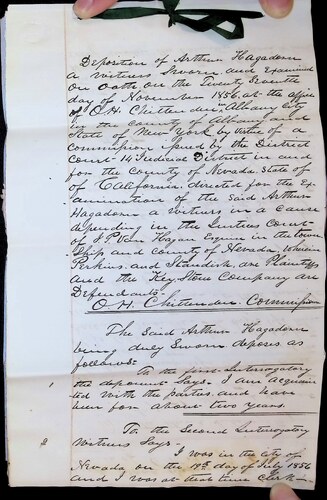 Deposition of Arthur Hagadorn
a witness sworn and examined
on oath on the Twenty Seventh
day of November 1856 at the office
of O. H. Chittenden in Albany City
in the County of Albany and
State of New York by virtue of a
commission issued by the District
Court 14 Judicial District in and
for the County of Nevada State of
of California directed for the Ex-
amination of the said Arthur
Hagadorn a witness in a cause
depending in the Justices Court
of J. P. Van Hagan Esquire in the town
ship and County of Nevada, wherein
Perkins and Standish are Plaintiffs
and the Key Stone Company are
Defendants
O. H. Chittenden Commission
The said Arthur Hagadorn
being duly sworn deposes as
follows
1 To the first Interrogatory
the deponent says. I am acquain
ted with the parties and have
been for about two years.
2 To the Second Interrogatory
Witness says.
I was in the city of
Nevada on the 18th day of July 1856
and I was at that time clerk in